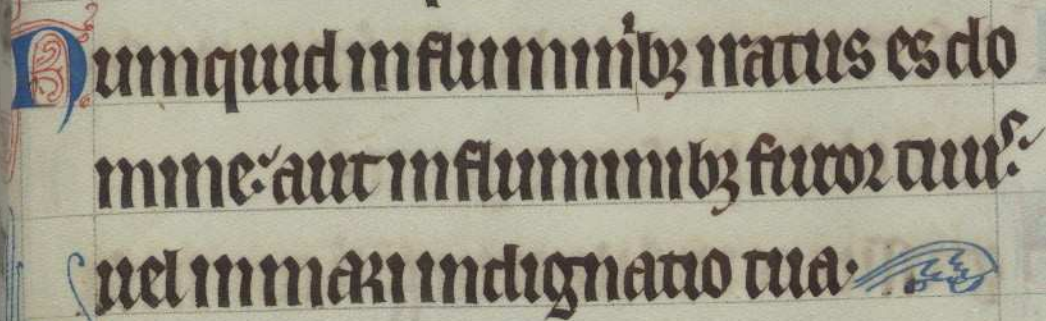 Numquid in fluminibꝫ iratus es do
mine: aut in fluminibꝫ furor tuus:
uel in mari indignatio tua.